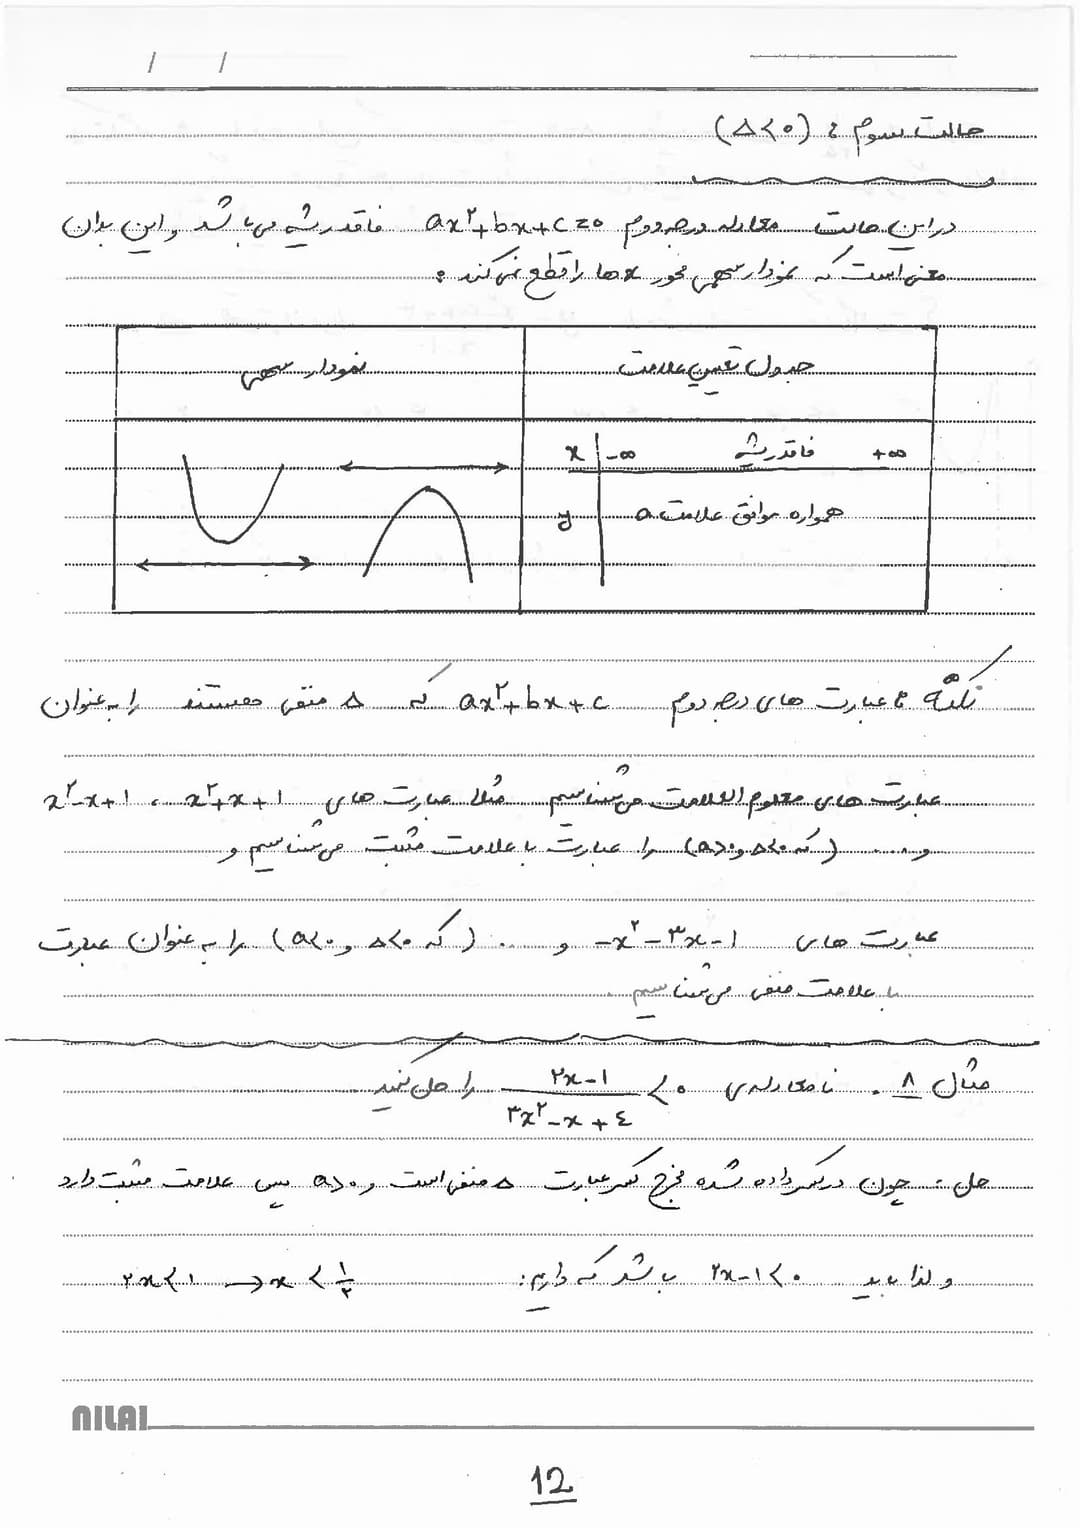 / /
حالت سوم : (Δ<۰)
در این حالت معادله درجه دوم ax²+bx+c=۰ فاقد ریشه می باشد و این بدان
معنی است که نمودار سهمی محور x ها را قطع نمی کند.
جدول تعیین علامت نمودار سهمی
x -∞ فاقد ریشه +∞
y همواره موافق علامت a
نکته : عبارت های درجه دوم ax²+bx+c که Δ منفی هستند را به عنوان
عبارت های معلوم العلامت می شناسیم مثلا عبارت های x²+x+1 ، x²-x+1
و .... (که Δ<۰ و a>۰) را عبارت با علامت مثبت می شناسیم و
عبارت های -x²-۳x-1 و ... (که Δ<۰ و a<۰) را به عنوان عبارت
با علامت منفی می شناسیم.
مثال ۸. نامعادله ی (۲x-1)/(۳x²-x+٤) < ۰ را حل کنید.
حل : چون در کسر داده شده مخرج کسر عبارت Δ منفی است و a>۰ پس علامت مثبت دارد
و لذا باید ۲x-1<۰ باشد که داریم: ۲x<1 → x<1/۲
NILAI
12